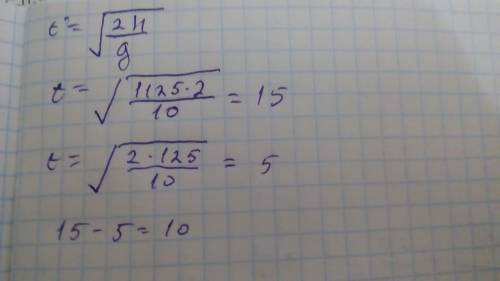 t = √(2h/g)
t = √(1125·2/10) = 15
t = √(2·125/10) = 5
15 - 5 = 10